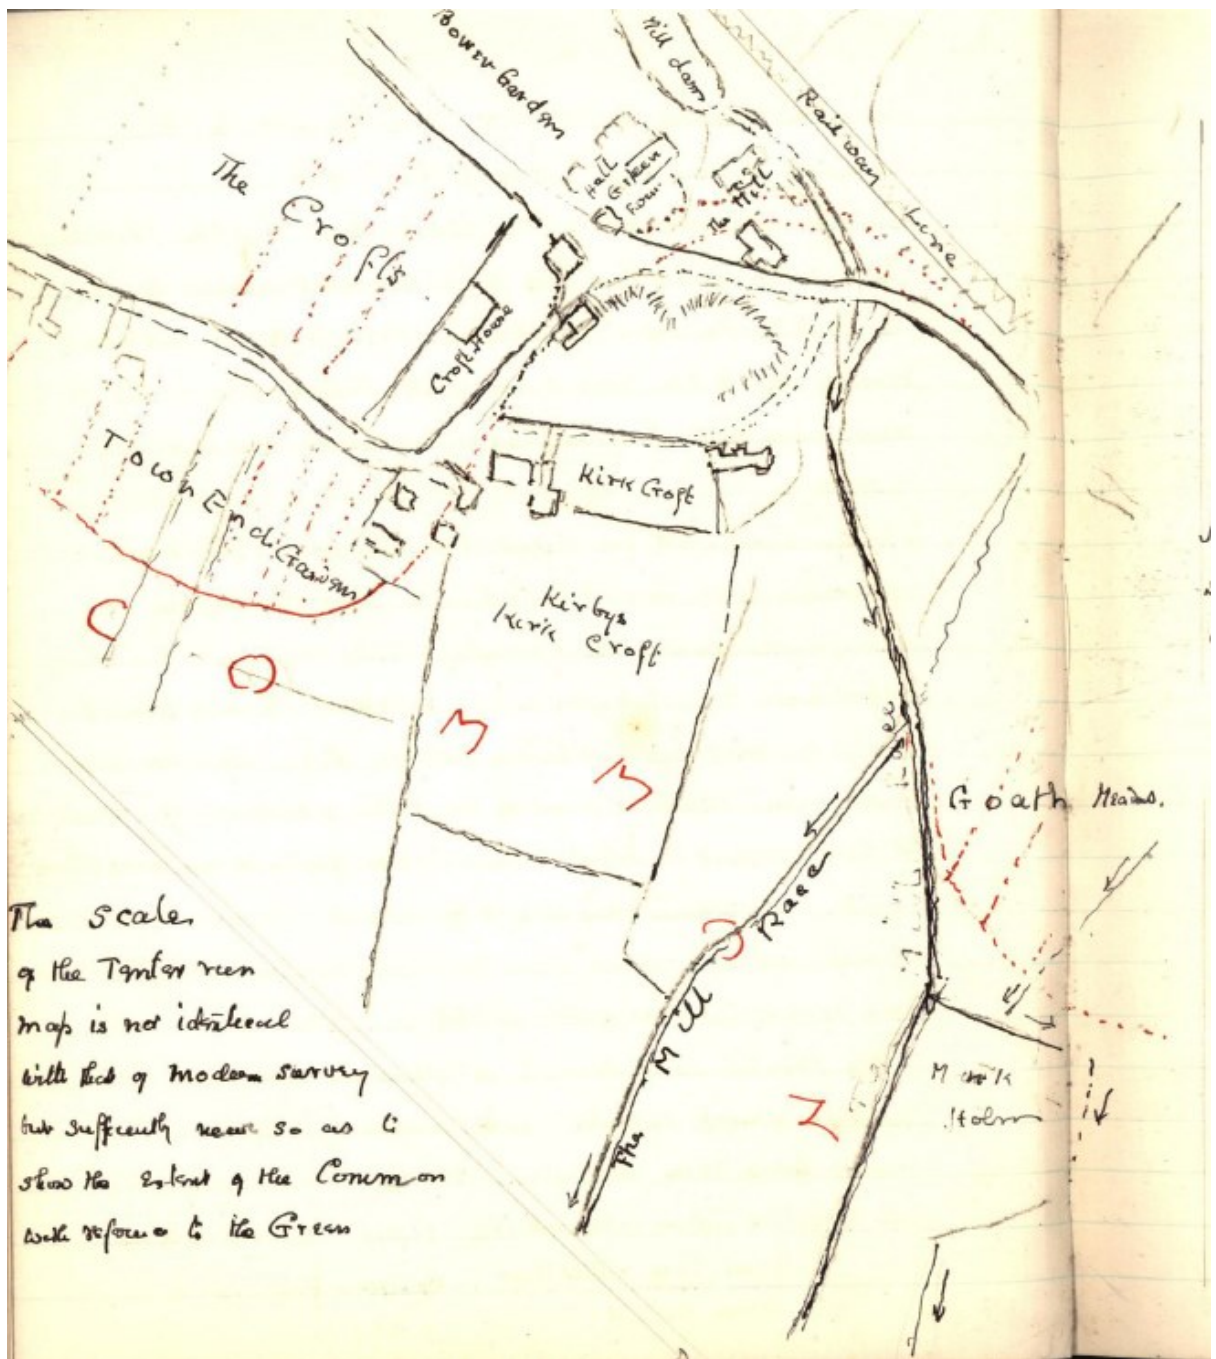 Bower Garden
Mill dam
Railway Line
Hall
Green
The Mill
The Crofts
Croft House
Town End
Kirk Croft
Kirbys
Kirk Croft
C
O
M
M
O
N
Goath Meadows.
The Mill Race
Holm
The Scale
of the
map is not identical
with that of modern survey
but sufficiently near so as to
show the Extent of the Common
with to the Green